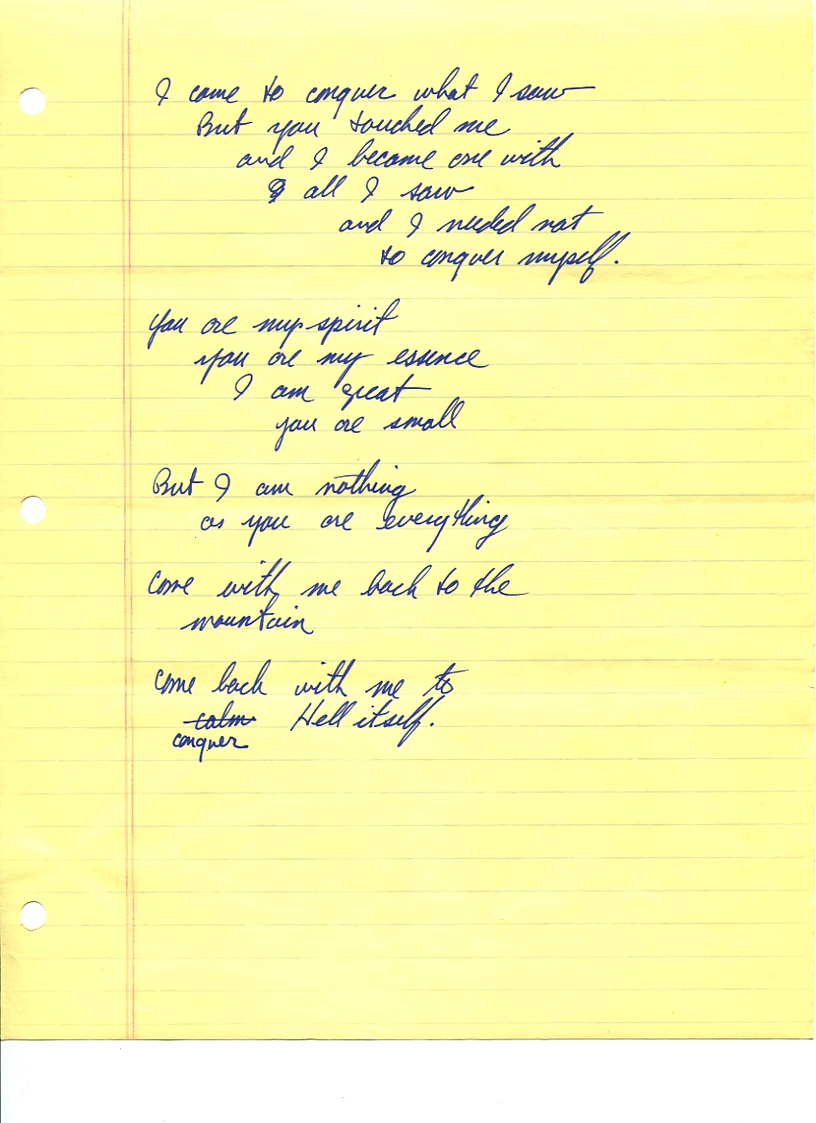 I came to conquer what I saw
But you touched me
and I became one with
all I saw
and I needed not
to conquer myself.
You are my spirit
you are my essence
I am great
you are small
But I am nothing
as you are everything
Come with me back to the
mountain
Come back with me to
calm Hell itself.
conquer